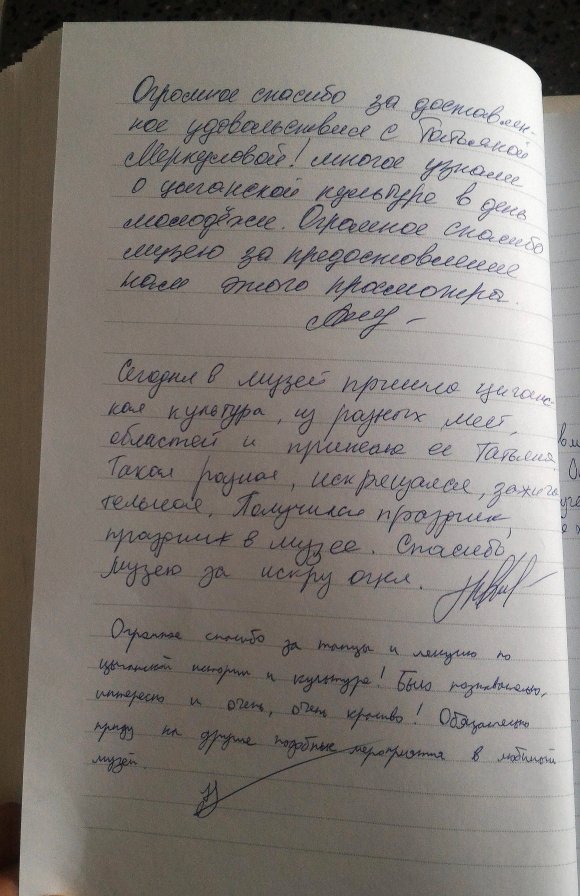 Огромное спасибо за доставлен-
ное удовольствие с Татьяной
Меркуловой! Многое узнали
о цыганской культуре в день
молодёжи. Огромное спасибо
музею за предоставление
нам этого просмотра.
Сегодня в музей пришла циганс-
кая культура, из разных мест,
областей и принесла ее Татьяна
Такая разная, искрещаяся, зажига
тельная. Получился праздник,
праздник в музее. Спасибо,
музею за искру огня.
Огромное спасибо за танцы и лекцию по
цыганской истории и культуре! Было познавательно,
интересно и очень, очень красиво! Обязательно
приду на другие подобные мероприятия в любимый
музей.